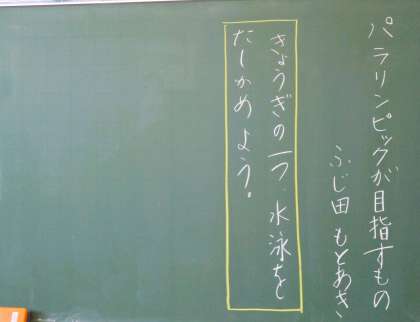 パラリンピックが目指すもの
ふじ田もとあき
きょうぎの一つ、水泳を
たしかめよう。